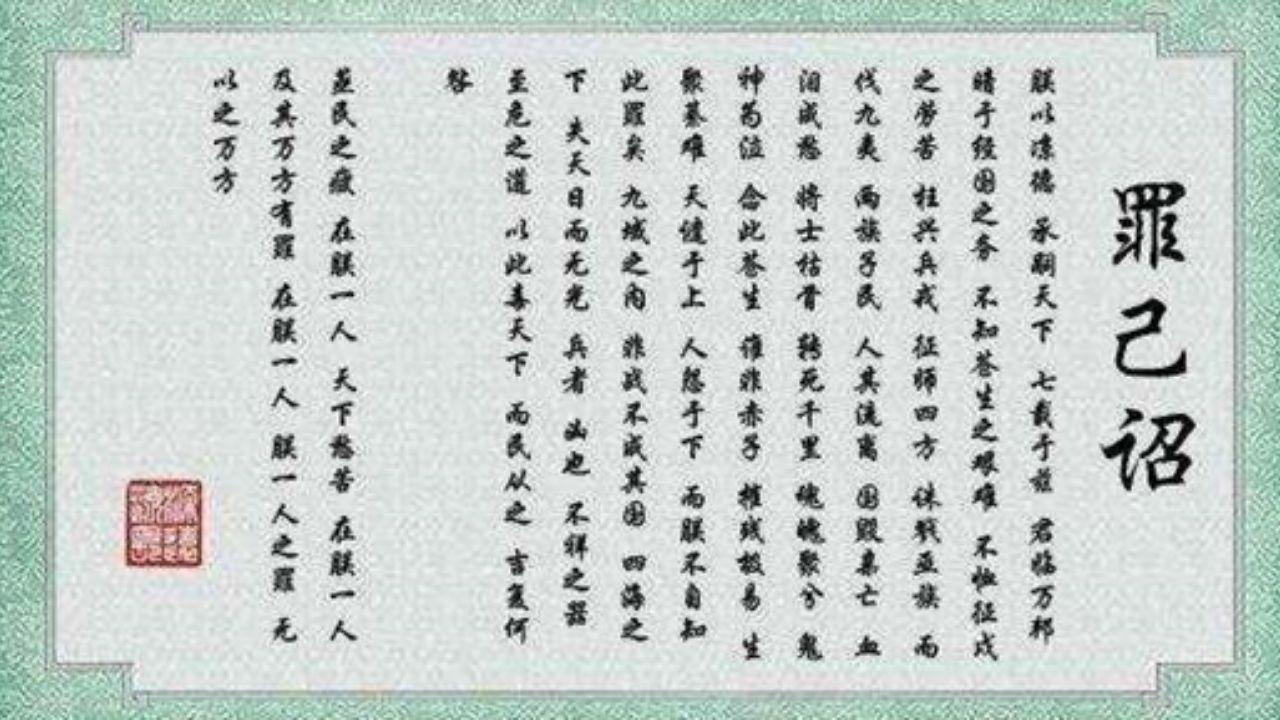 罪己诏
朕以凉德 承嗣天下 七载于兹 君临万邦
晴于经国之务 不知苍生之艰难 不恤征戍
之劳苦 枉兴兵戎 征师四方 诛戮五族 而
伐九夷 两族子民 人其流离 国毁未亡 血
泪成愁 将士枯骨 转死千里 魂魄聚兮 鬼
神为泣 念此苍生 谁非赤子 摧残极易 生
聚綦难 天健于上 人怨于下 而朕不自知
此罪矣 九域之内 非战不成其国 四海之
下 夫天日而无光 兵者 凶也 不祥之器
至危之道 以此毒天下 而民从之 吉复何
咎
丞民之疲 在朕一人 天下愁苦 在朕一人
及其万方有罪 在朕一人 朕一人之罪 无
以之万方